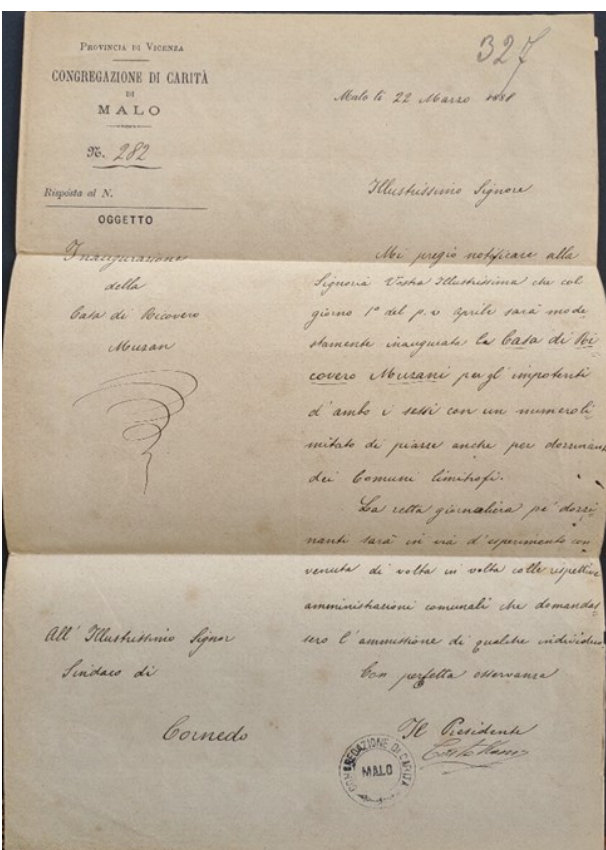 327
PROVINCIA DI VICENZA
CONGREGAZIONE DI CARITÀ
DI
MALO
N. 282
Risposta al N.
OGGETTO
Inaugurazione
della
Casa di Ricovero
Muzan
Malo li 22 Marzo 1888
Illustrissimo Signore
Mi pregio notificare alla
Signoria Vostra Illustrissima che col
giorno 1° del p. v. Aprile sarà mode
stamente inaugurata la Casa di Ri
covero Muzani per gl' impotenti
d' ambo i sessi con un numero li
mitato di piazze anche per dozzinanti
dei Comuni limitrofi.
La retta giornaliera pe' dozzi
nanti sarà in via d' esperimento con
venuta di volta in volta colle rispettive
amministrazioni comunali che domandas
sero l' ammissione di qualche individuo
Con perfetta osservanza
All' Illustrissimo Signor
Sindaco di
Cornedo
Il Presidente
CONGREGAZIONE DI CARITÀ
MALO